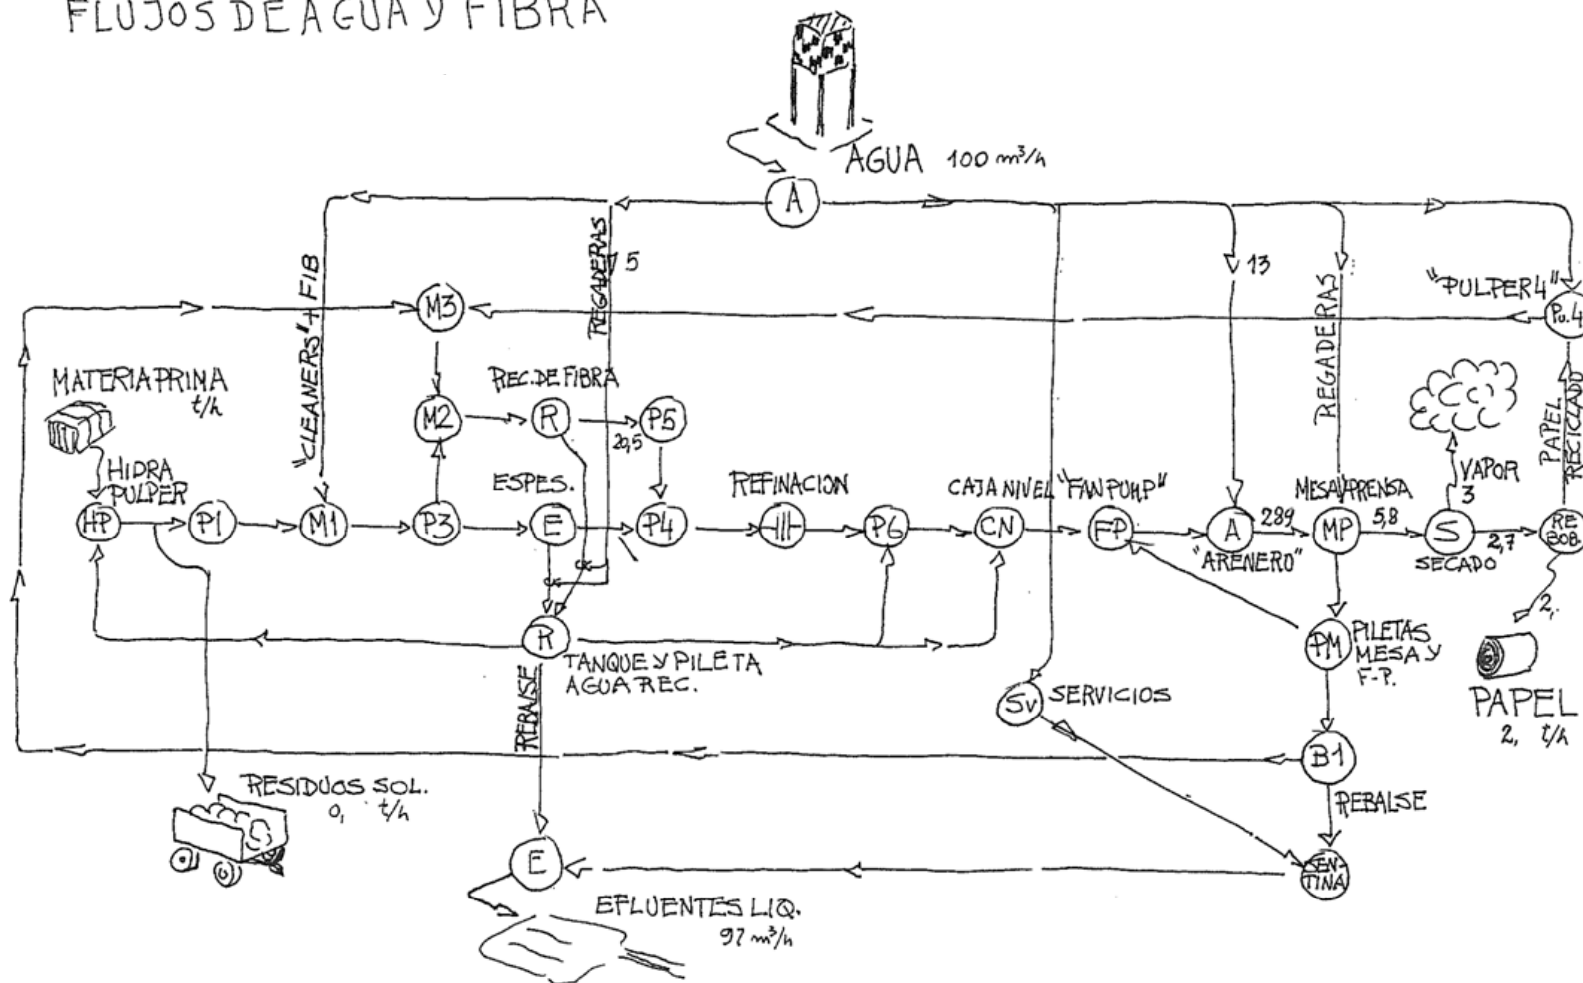 FLUJOS DE AGUA Y FIBRA
AGUA 100 m³/h
A
"CLEANERS" + FIB
REGADERAS
5
13
REGADERAS
"PULPER 4"
Pu.4
M3
MATERIA PRIMA
t/h
REC. DE FIBRA
M2
R
20,5
P5
VAPOR
3
PAPEL
RECICLADO
HIDRA
PULPER
ESPES.
REFINACION
CAJA NIVEL
"FAN PUMP"
MESA Y PRENSA
HP
P1
M1
P3
E
P4
P6
CN
FP
A
289
MP
5,8
S
2,7
RE
BOB.
"ARENERO"
SECADO
2,
R
TANQUE Y PILETA
AGUA REC.
PM
PILETAS
MESA Y
F-P.
REBALSE
Sv
SERVICIOS
PAPEL
2, t/h
B1
RESIDUOS SOL.
0, t/h
REBALSE
E
SEN-
TINA
EFLUENTES LIQ.
97 m³/h